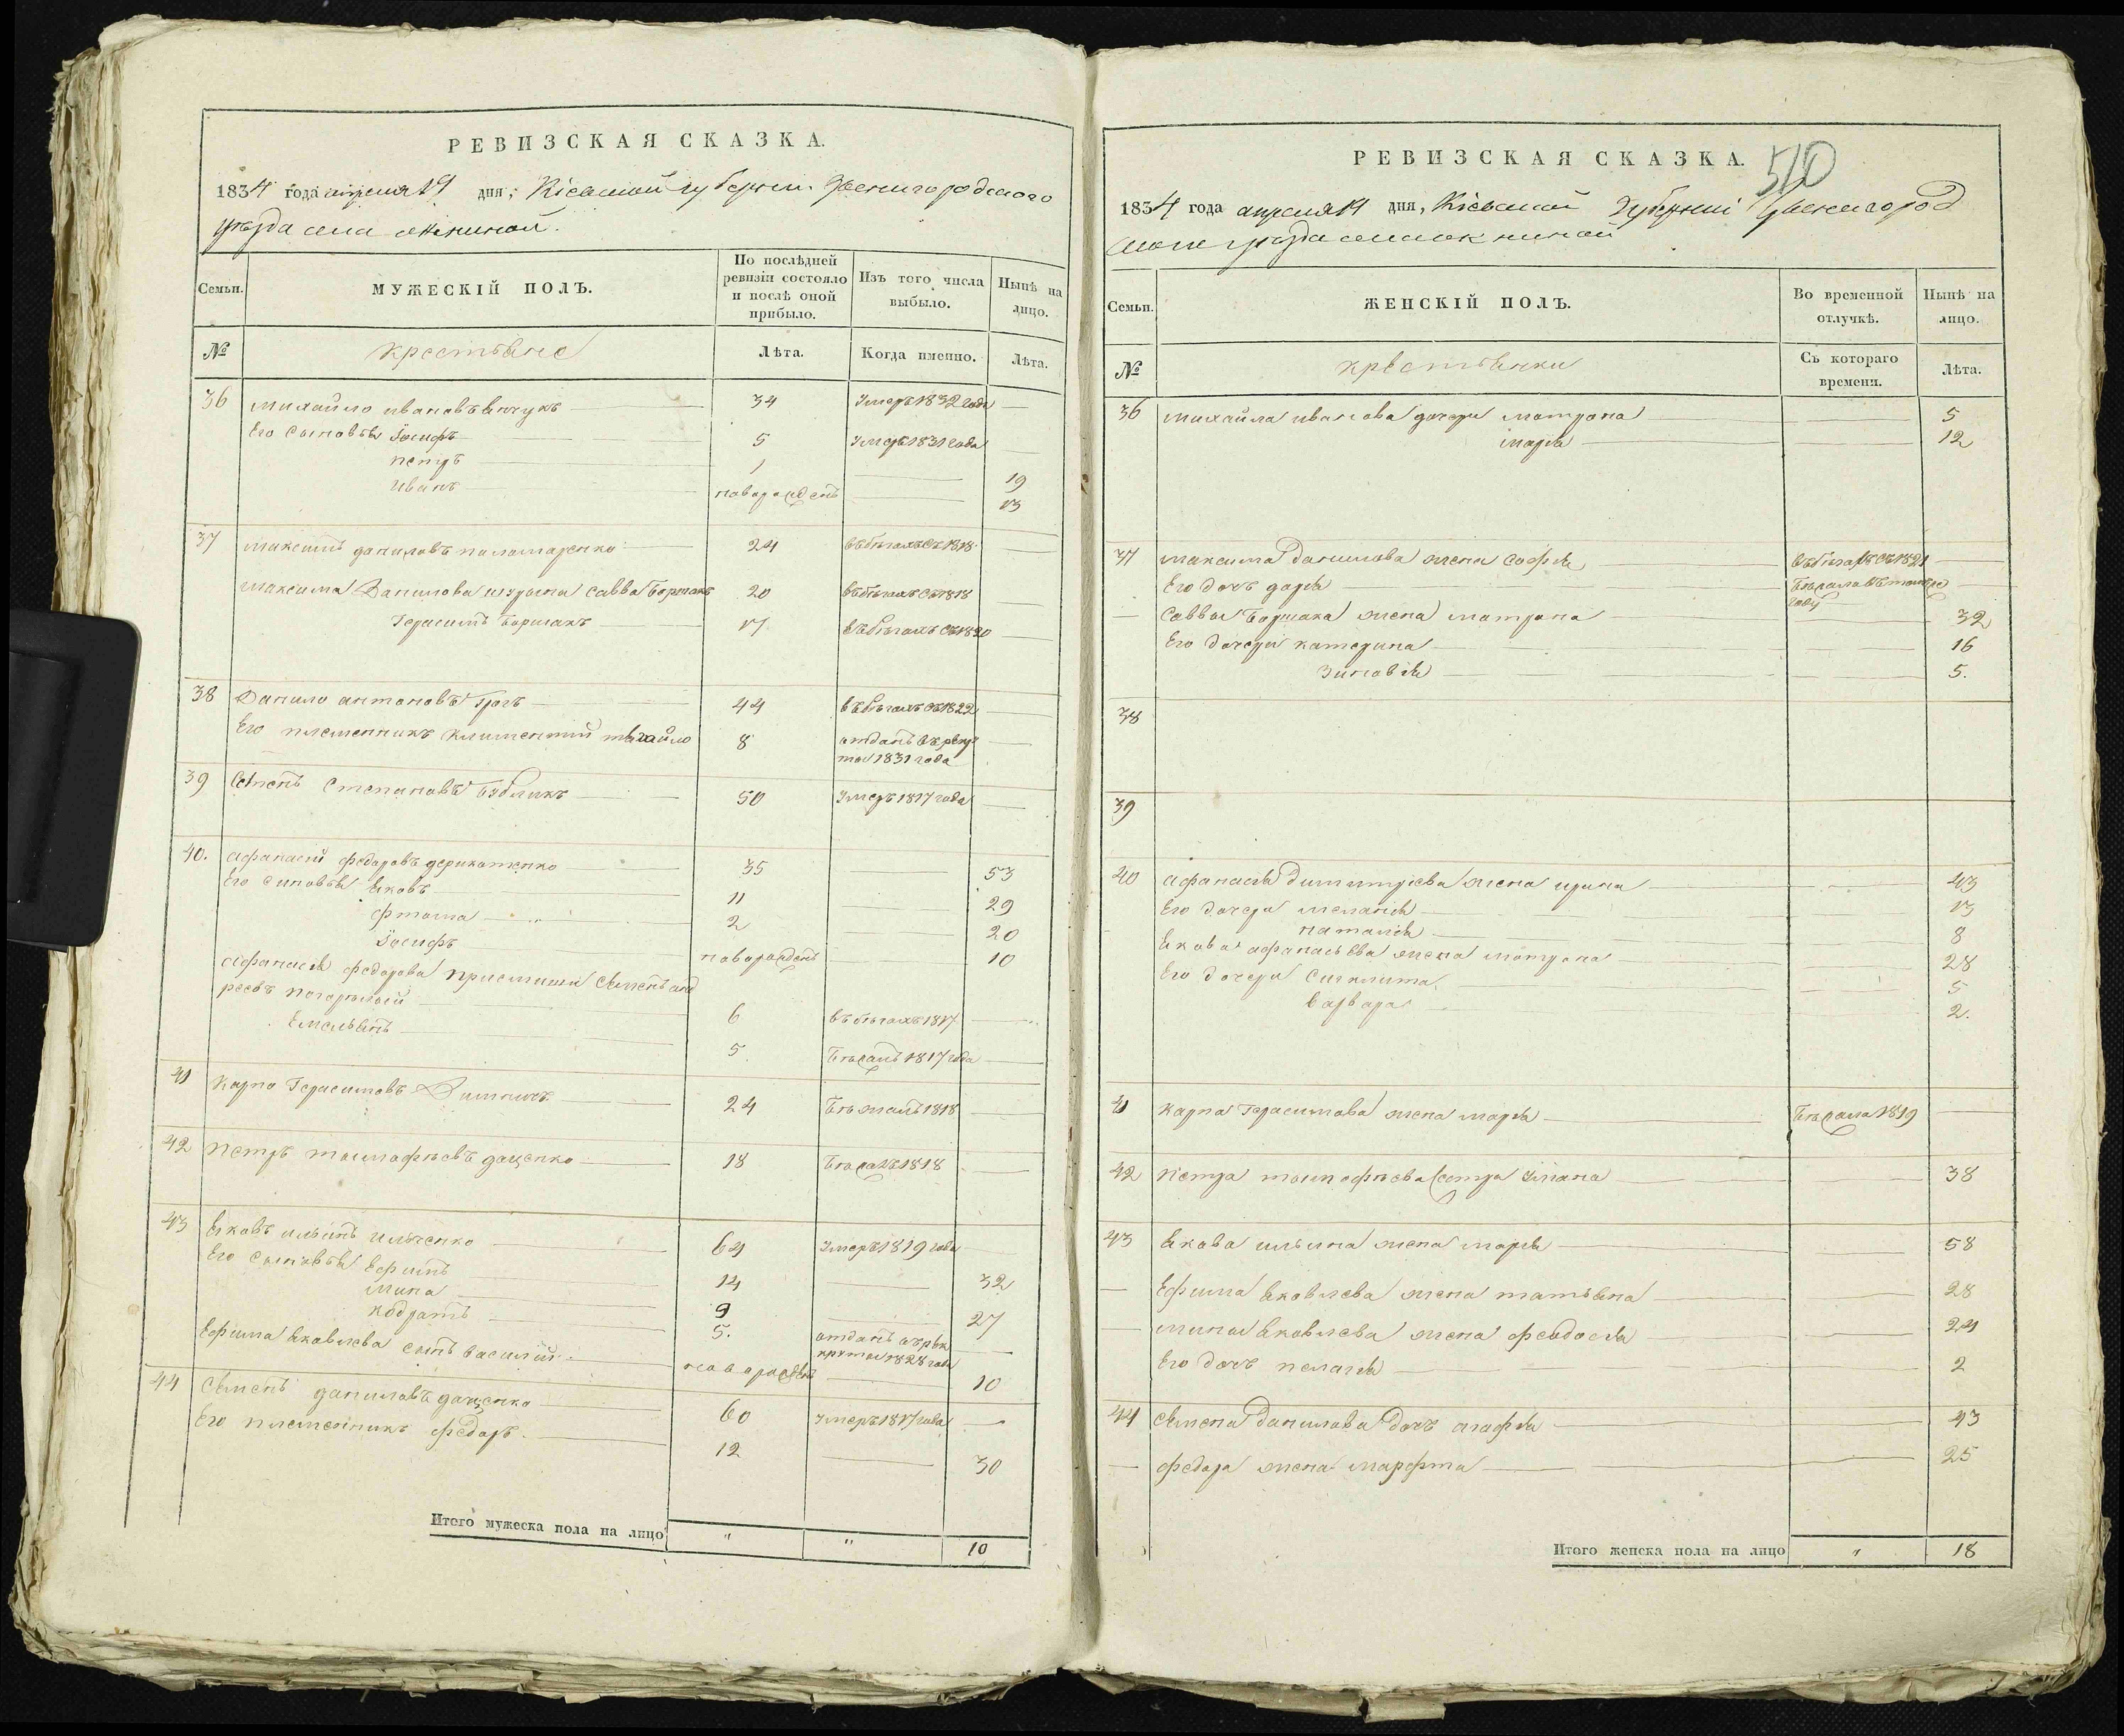 РЕВИЗСКАЯ СКАЗКА.
1834 года апреля 14 дня, Кіевской губернии Звенигородского
уезда села
Семьи. МУЖЕСКІЙ ПОЛЪ. По послѣдней ревизіи состояло и послѣ оной прибыло. Изъ того числа выбыло. Нынѣ на лицо.
№ крестьяне Лѣта. Когда именно. Лѣта.
36 михайло ивановъ 34 Умеръ 1832 года
Его сыновья Іосифъ 5 Умеръ 1831 года
петръ 1 19
иванъ новорожденъ 13
37 максимъ даниловъ паламаренко 24 въ бѣгахъ съ 1818
максима Данилова шурыны савва Боршакъ 20 въ бѣгахъ съ 1818
Герасимъ Боршакъ 17 въ бѣгахъ съ 1820
38 Данило антоновъ 44 въ бѣгахъ съ 1822
Его племенникъ климентий михайло 8 отданъ въ рекр
ты 1831 года
39 Семенъ Степановъ Бубликъ 50 Умеръ 1817 года
40. Афанасій федоровъ дерикотенко 35 53
Его синовья Яковъ 11 29
фтома 2 20
Іосифъ новорожденъ 10
Афанасия федорова приемыши Семенъ анд
реевъ погорелый 6 въ бѣгахъ 1817
Емельянъ 5. Бѣжалъ 1817 года
41 Карпо Герасимовъ 24 Бѣжалъ 1818
42 Петръ тымофѣевъ даценко 18 Бѣжалъ 1818
43 Яковъ ильинъ ильченко 64 Умеръ 1819 года
Его сыновья Ефимъ 14 32
мина 9 27
кодратъ 5. отданъ въ рек
круты 1828 года
Ефима Яковлева сынъ василий новорожденъ 10
44 Семенъ даниловъ даценко 60 Умеръ 1817 года
Его племенникъ федоръ 12 30
Итого мужеска пола на лицо " " 10
510
РЕВИЗСКАЯ СКАЗКА.
1834 года апреля 14 дня, Кіевской Губерніи Звенигород
ского уезда села
Семьи. ЖЕНСКІЙ ПОЛЪ. Во временной отлучкѣ. Нынѣ на лицо.
№ крестьянки Съ котораго времени. Лѣта.
36 михайла иванова дочери матрона 5
марья 12
37 максима Данилова жена софья въ бѣгахъ съ 1821
Его дочь дарья Бѣжала въ томже
году
Саввы Боршака жена матрона 32
Его дочери катерина 16
Зиновья 5.
38
39
40 Афанасия димитріева жена ирина 43
Его дочери мелания 13
наталия 8
Якова афанасьева жена матрона 28
Его дочери сиклита 5
варвара 2.
41 Карпа Герасимова жена марья Бѣжала 1819
42 Петра тымофѣева сестра Улиана 38
43 Якова ильина жена марья 58
Ефима Яковлева жена татьяна 28
мины Яковлева жена феодосья 24
Его дочь пелагея 2
44 Семена Данилова дочь агафья 43
федора жена марфта 25
Итого женска пола на лицо " 18